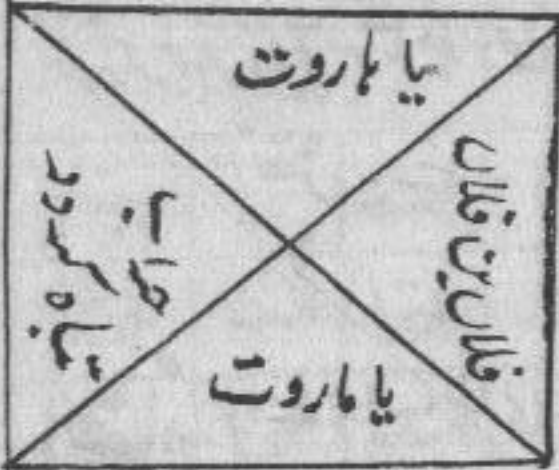 یا ہاروت
فلاں بن فلاں
یا ماروت
خراب
تباہ گردد